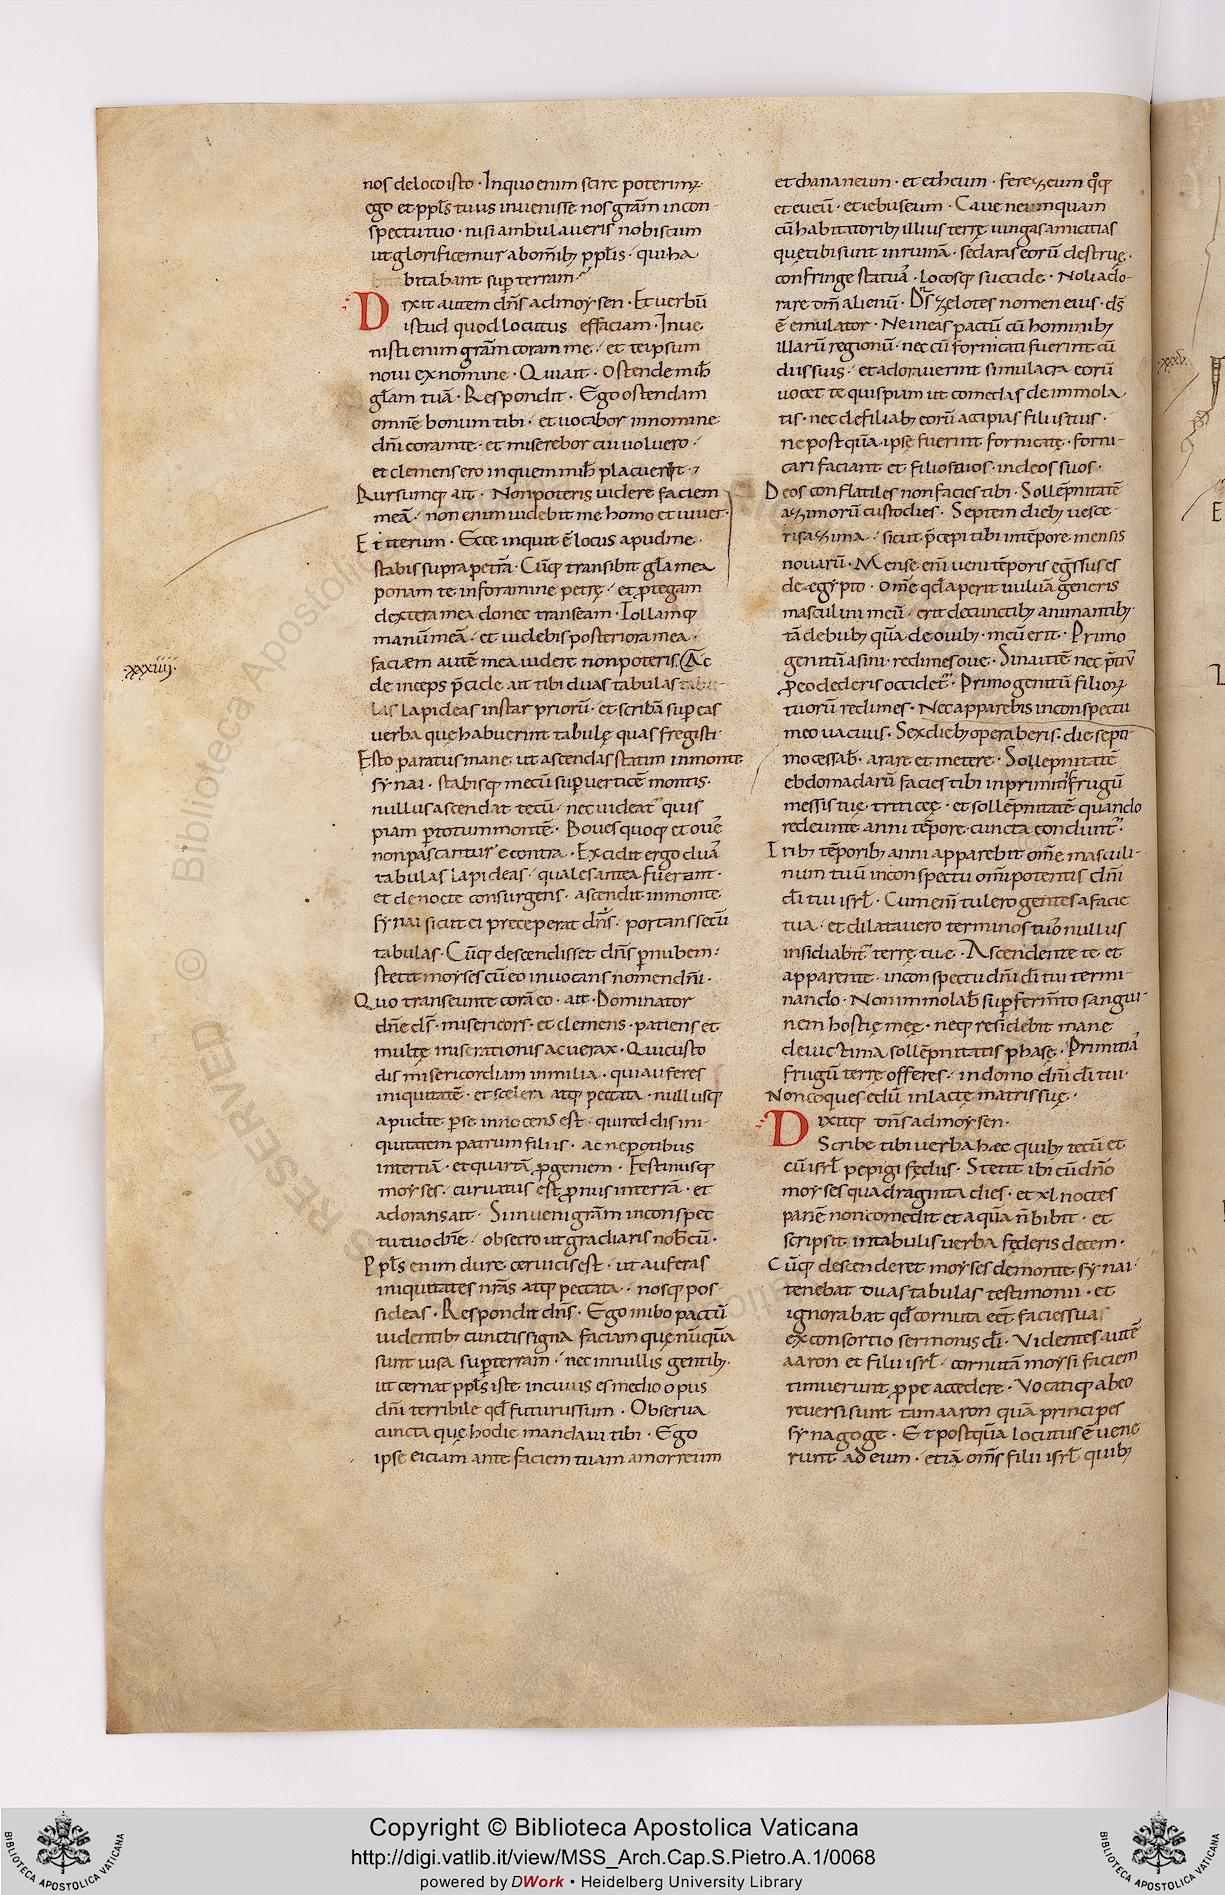 nos deloco isto · Inquo enim scire poterimꝰ
ego et ppl̄s tuus invenisse nos grām incon
spectu tuo · nisi ambulaveris nobiscum
ut glorificemur abom̄ib; ppl̄is · qui ha
bitabant sup terram
Dixit autem dn̄s admoysen · Et verbū
istud quod locutus es faciam · Inve
nisti enim grām coram me · et teipsum
novi exnomine · Qui ait · Ostende mih̄
gl̄am tuā · Respondit · Ego ostendam
omnē bonum tibi · et vocabor innomine
dn̄i coramte · et miserebor cui voluero ·
et clemens ero inquem mih̄ placuerit ·
Rursumq; ait · Nonpoteris videre faciem
meā · non enim videbit me homo et vivet ·
Et iterum · Ecce inquit ē locus apudme ·
stabis supra petrā · Cūq; transibit gl̄a mea
ponam te inforamine petrę · et ꝓtegam
dextera mea donec transeam · Tollamq;
manū meā · et videbis posteriora mea ·
faciem autē mea videre nonpoteris · Ac
de inceps p̄cide ait tibi duas tabulas
lapideas instar priorū · et scribā sup eas
verba quę habuerint tabulę quas fregisti ·
Esto paratus mane ut ascendas statim inmonte
synai · stabisq; mecū sup verticē montis ·
nullus ascendat tecū · nec videat quis
piam p totum montē · Boves quoq; et oves
nonpascantur e contra · Excidit ergo duas
tabulas lapideas · quales antea fuerant ·
et denocte consurgens · ascendit inmonte
synai sicut ei preceperat dn̄s · portans secū
tabulas · Cūq; descendisset dn̄s p nubem ·
stetit moyses cū eo invocans nomen dn̄i ·
Quo transeunte corā eo · ait · Dominator
dn̄e ds̄ · misericors · et clemens · patiens et
multę miserationis ac verax · Qui custo
dis misericordiam inmilia · qui auferes
iniquitatē · et scelera atq; peccata · nullusq;
apudte p se innocens est · qui reddis ini
quitatem patrum filiis · ac nepotibus
intertiā · et quartā ꝓgeniem · Festinusq;
moyses · curvatus est ꝓnus interrā · et
adorans ait · Si inveni grām inconspec
tu tuo dn̄e · obsecro ut gradiaris nob̄cū ·
Ppl̄s enim dure cervicis est · ut auferas
iniquitates nr̄as atq; peccata · nosq; pos
sideas · Respondit dn̄s · Ego inibo pactū
videntib; cunctis signa faciam quę nūquā
sunt visa sup terram · nec innullis gentib; ·
ut cernat ppl̄s iste incuius es medio opus
dn̄i terribile qd̄ facturus sum · Observa
cuncta quę hodie mandavi tibi · Ego
ipse eiciam ante faciem tuam amorreum
et chananeum · et etheum · ferezeum q̊q;
et eveū · et iebuseum · Cave ne umquam
cū habitatorib; illius terrę iungas amicitias
quę tibi sunt inruinā · sed aras eorū destrue ·
confringe statuas · lucosq; succide · Noli ado
rare dm̄ alienū · Dn̄s zelotes nomen eius · ds̄
ē emulator · Ne ineas pactū cū hominib;
illarū regionū · nec cū fornicati fuerint cū
diis suis · et adoraverint simulacra eorū
vocet te quispiam ut comedas de immola
tis · nec de filiab; eorū accipias filiis tuis ·
ne postquā ipsę fuerint fornicatę · forni
cari faciant et filios tuos · indeos suos ·
Deos conflatiles nonfacies tibi · Sollēpnitatē
azimorū custodies · Septem dieb; vesce
ris azima · sicut p̄cepi tibi intēpore mensis
novarū · Mense eni veni tēporis egressus es
de egypto · Om̄e qd̄ aperit vulvā generis
masculini meū erit · decunctib; animantib;
tā debub; quā de ovib; · meū erit · Primo
genitū asini · redimes ove · Sinautē nec p̄tiū
ꝓ eo dederis occidet · Primogenitū filioꝝ
tuorū redimes · Nec apparebis inconspectu
meo vacuus · Sex dieb; operaberis · die septi
mo cessab̄ · arare et metere · Sollepnitatē
ebdomadarū facies tibi inprimitiis frugū
messis tuę triticeę · et sollēpnitatē quando
redeunte anni tēpore cuncta conduntur ·
Trib; tēporib; anni apparebit om̄e masculi
num tuū inconspectu omipotentis dn̄i
dī tui isrl̄ · Cum eni tulero gentes afacie
tua · et dilatavero terminos tuos nullus
insidiabit terrę tuę · Ascendente te et
apparente · inconspectu dn̄i dī tui termi
nando · Non immolab̄ sup fermto sangui
nem hostię meę · neq; residebit mane
devictima sollēpnitatis phasę · Primitias
frugū terrę offeres · indomo dn̄i dī tui ·
Non coques edū inlacte matris suę ·
Dixitq; dn̄s admoysen ·
Scribe tibi verba hæc quib; tecū et
cū isrl̄ pepigi fędus · Stetit ibi cū dn̄o
moyses quadraginta dies · et xl noctes
panē non comedit et aquā n̄ bibit · et
scripsit intabulis verba fęderis decem ·
Cūq; descenderet moyses demonte synai ·
tenebat duas tabulas testimonii · et
ignorabat qd̄ cornuta eēt facies sua
exconsortio sermonis dī · Videntes autē
aaron et filii isrl̄ · cornutā moysi faciem
timuerunt ꝓpe accedere · Vocatiq; abeo
reversi sunt tam aaron quā principes
synagoge · Et postquā locutus ē vene
runt ad eum · etiā om̄s filii isrl̄ quib;
xxxiiii·
Copyright © Biblioteca Apostolica Vaticana
http://digi.vatlib.it/view/MSS_Arch.Cap.S.Pietro.A.1/0068
powered by DWork • Heidelberg University Library